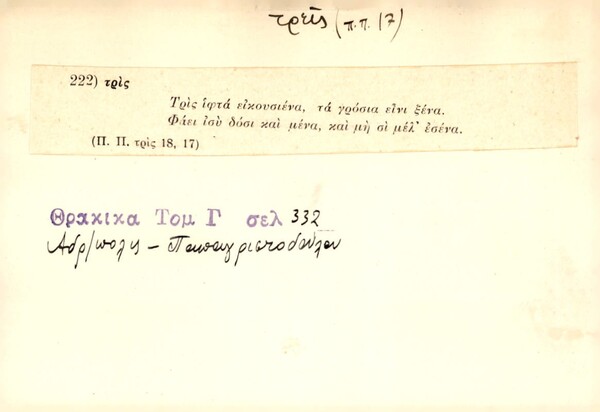 τρεῖς (π.π. 17)
222) τρὶς
Τρὶς ἱφτά εἰκουσιένα, τά γρόσια εἶνι ξένα.
Φάει ἰσὺ δόσι καὶ μένα, καὶ μὴ σὶ μέλ' ἐσένα.
(Π. Π. τρὶς 18, 17)
Θρακικα Τομ Γ σελ 332
Αδρ/πολις – Παπαχριστοδούλου